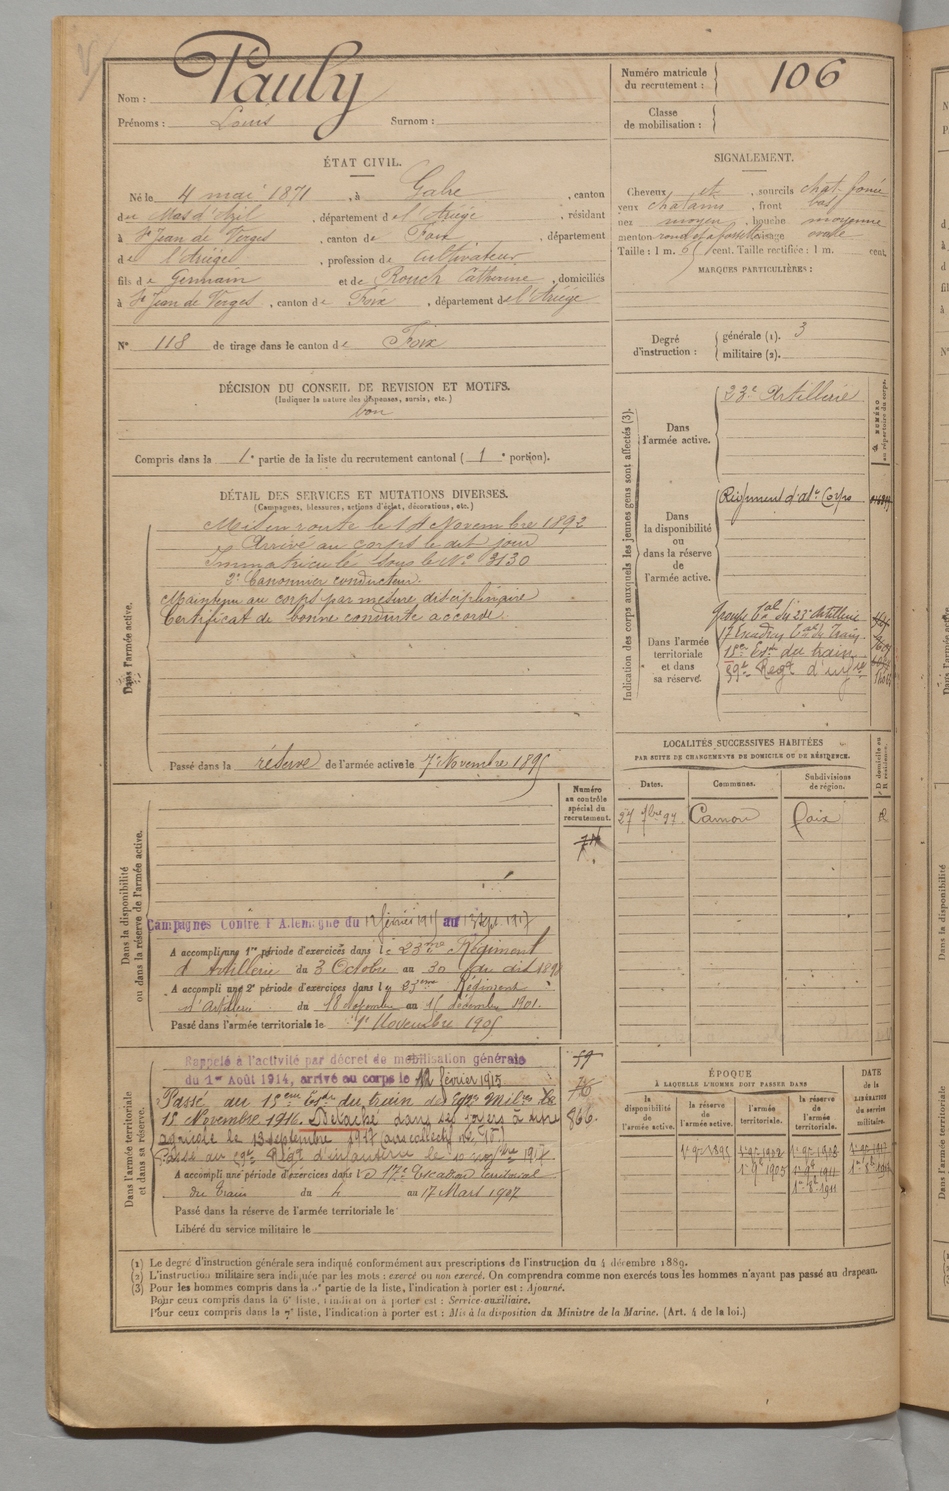 Nom : Pauly
Prénoms : Louis Surnom :
Numéro matricule du recrutement : 106
Classe de mobilisation :
ÉTAT CIVIL.
Né le 4 mai 1871, à Gabre, canton
du Mas d'Azil, département de l'Ariège, résidant
à St Jean de Verges, canton de Foix, département
de l'Ariège, profession de Cultivateur
fils de Germain et de Rouch Catherine, domiciliés
à St Jean de Verges, canton de Foix, département de l'Ariège
N° 118 de tirage dans le canton de Foix
SIGNALEMENT.
Cheveux et, sourcils chat. foncé
yeux chatains, front bas
nez moyen, bouche moyenne
menton rond et à fossette visage ovale
Taille : 1 m. 65 cent. Taille rectifiée : 1 m. cent.
MARQUES PARTICULIÈRES :
Degré d'instruction : générale (1). 3
militaire (2).
DÉCISION DU CONSEIL DE REVISION ET MOTIFS.
(Indiquer la nature des dispenses, sursis, etc.)
bon
Compris dans la 1e partie de la liste du recrutement cantonal ( 1e portion).
DÉTAIL DES SERVICES ET MUTATIONS DIVERSES.
(Campagnes, blessures, actions d'éclat, décorations, etc.)
Dans l'armée active.
Mis en route le Novembre 1892
Arrivé au corps le dit jour
Immatriculé sous le No 3130
2e Canonnier conducteur.
Maintenu au corps par mesure disciplinaire
Certificat de bonne conduite accordé
Passé dans la réserve de l'armée active le 7 Novembre 1895
Indication des corps auxquels les jeunes gens sont affectés (3).
NUMÉRO au répertoire du corps.
Dans l'armée active.
23e Artillerie
Dans la disponibilité ou dans la réserve de l'armée active.
Régiment d'Art. Corps
Dans l'armée territoriale et dans sa réserve.
Groupe tal du 23e Artillerie
17 Escadron tal du Train
18e Esc. du train
59e Regt d'inf
LOCALITÉS SUCCESSIVES HABITÉES
PAR SUITE DE CHANGEMENTS DE DOMICILE OU DE RÉSIDENCE.
Dates. Communes. Subdivisions de région. D domicile ou R résidence.
27 7bre 97 Camon Foix R
Dans la disponibilité ou dans la réserve de l'armée active.
Numéro au contrôle spécial du recrutement.
Campagnes Contre l'Allemagne du 12 février 1915 au 13 Sept 1917
A accompli une 1re période d'exercices dans le 23me Régiment
d'Artillerie du 3 Octobre au 30 du dit 1898
A accompli une 2e période d'exercices dans le 23eme Régiment
d'Artillerie du 18 Novembre au 15 décembre 1901.
Passé dans l'armée territoriale le 1er Novembre 1905
Dans l'armée territoriale et dans sa réserve.
Rappelé à l'activité par décret de mobilisation générale
du 1er Août 1914, arrivé au corps le 12 février 1915
Passé au 18eme Esc. du train des Eqpes Milres le
18 Novembre 1916. Détaché dans ses foyers à titre
agricole le 13 septembre 1917
Passé au 59e Regt d'infanterie le 10 1917.
A accompli une période d'exercices dans le 17e Escadron territorial
du Train du 4 au 17 Mars 1907
Passé dans la réserve de l'armée territoriale le
Libéré du service militaire le
59
76
866.
ÉPOQUE
À LAQUELLE L'HOMME DOIT PASSER DANS
la disponibilité de l'armée active. la réserve de l'armée active. l'armée territoriale. la réserve de l'armée territoriale.
DATE de la LIBÉRATION du service militaire.
1er 9bre 1895
1er 9bre 1905
1er 8bre 1911
(1) Le degré d'instruction générale sera indiqué conformément aux prescriptions de l'instruction du 4 décembre 1889.
(2) L'instruction militaire sera indiquée par les mots : exercé ou non exercé. On comprendra comme non exercés tous les hommes n'ayant pas passé au drapeau.
(3) Pour les hommes compris dans la 5e partie de la liste, l'indication à porter est : Ajourné.
Pour ceux compris dans la 6e liste, l'indication à porter est : Service auxiliaire.
Pour ceux compris dans la 7e liste, l'indication à porter est : Mis à la disposition du Ministre de la Marine. (Art. 4 de la loi.)